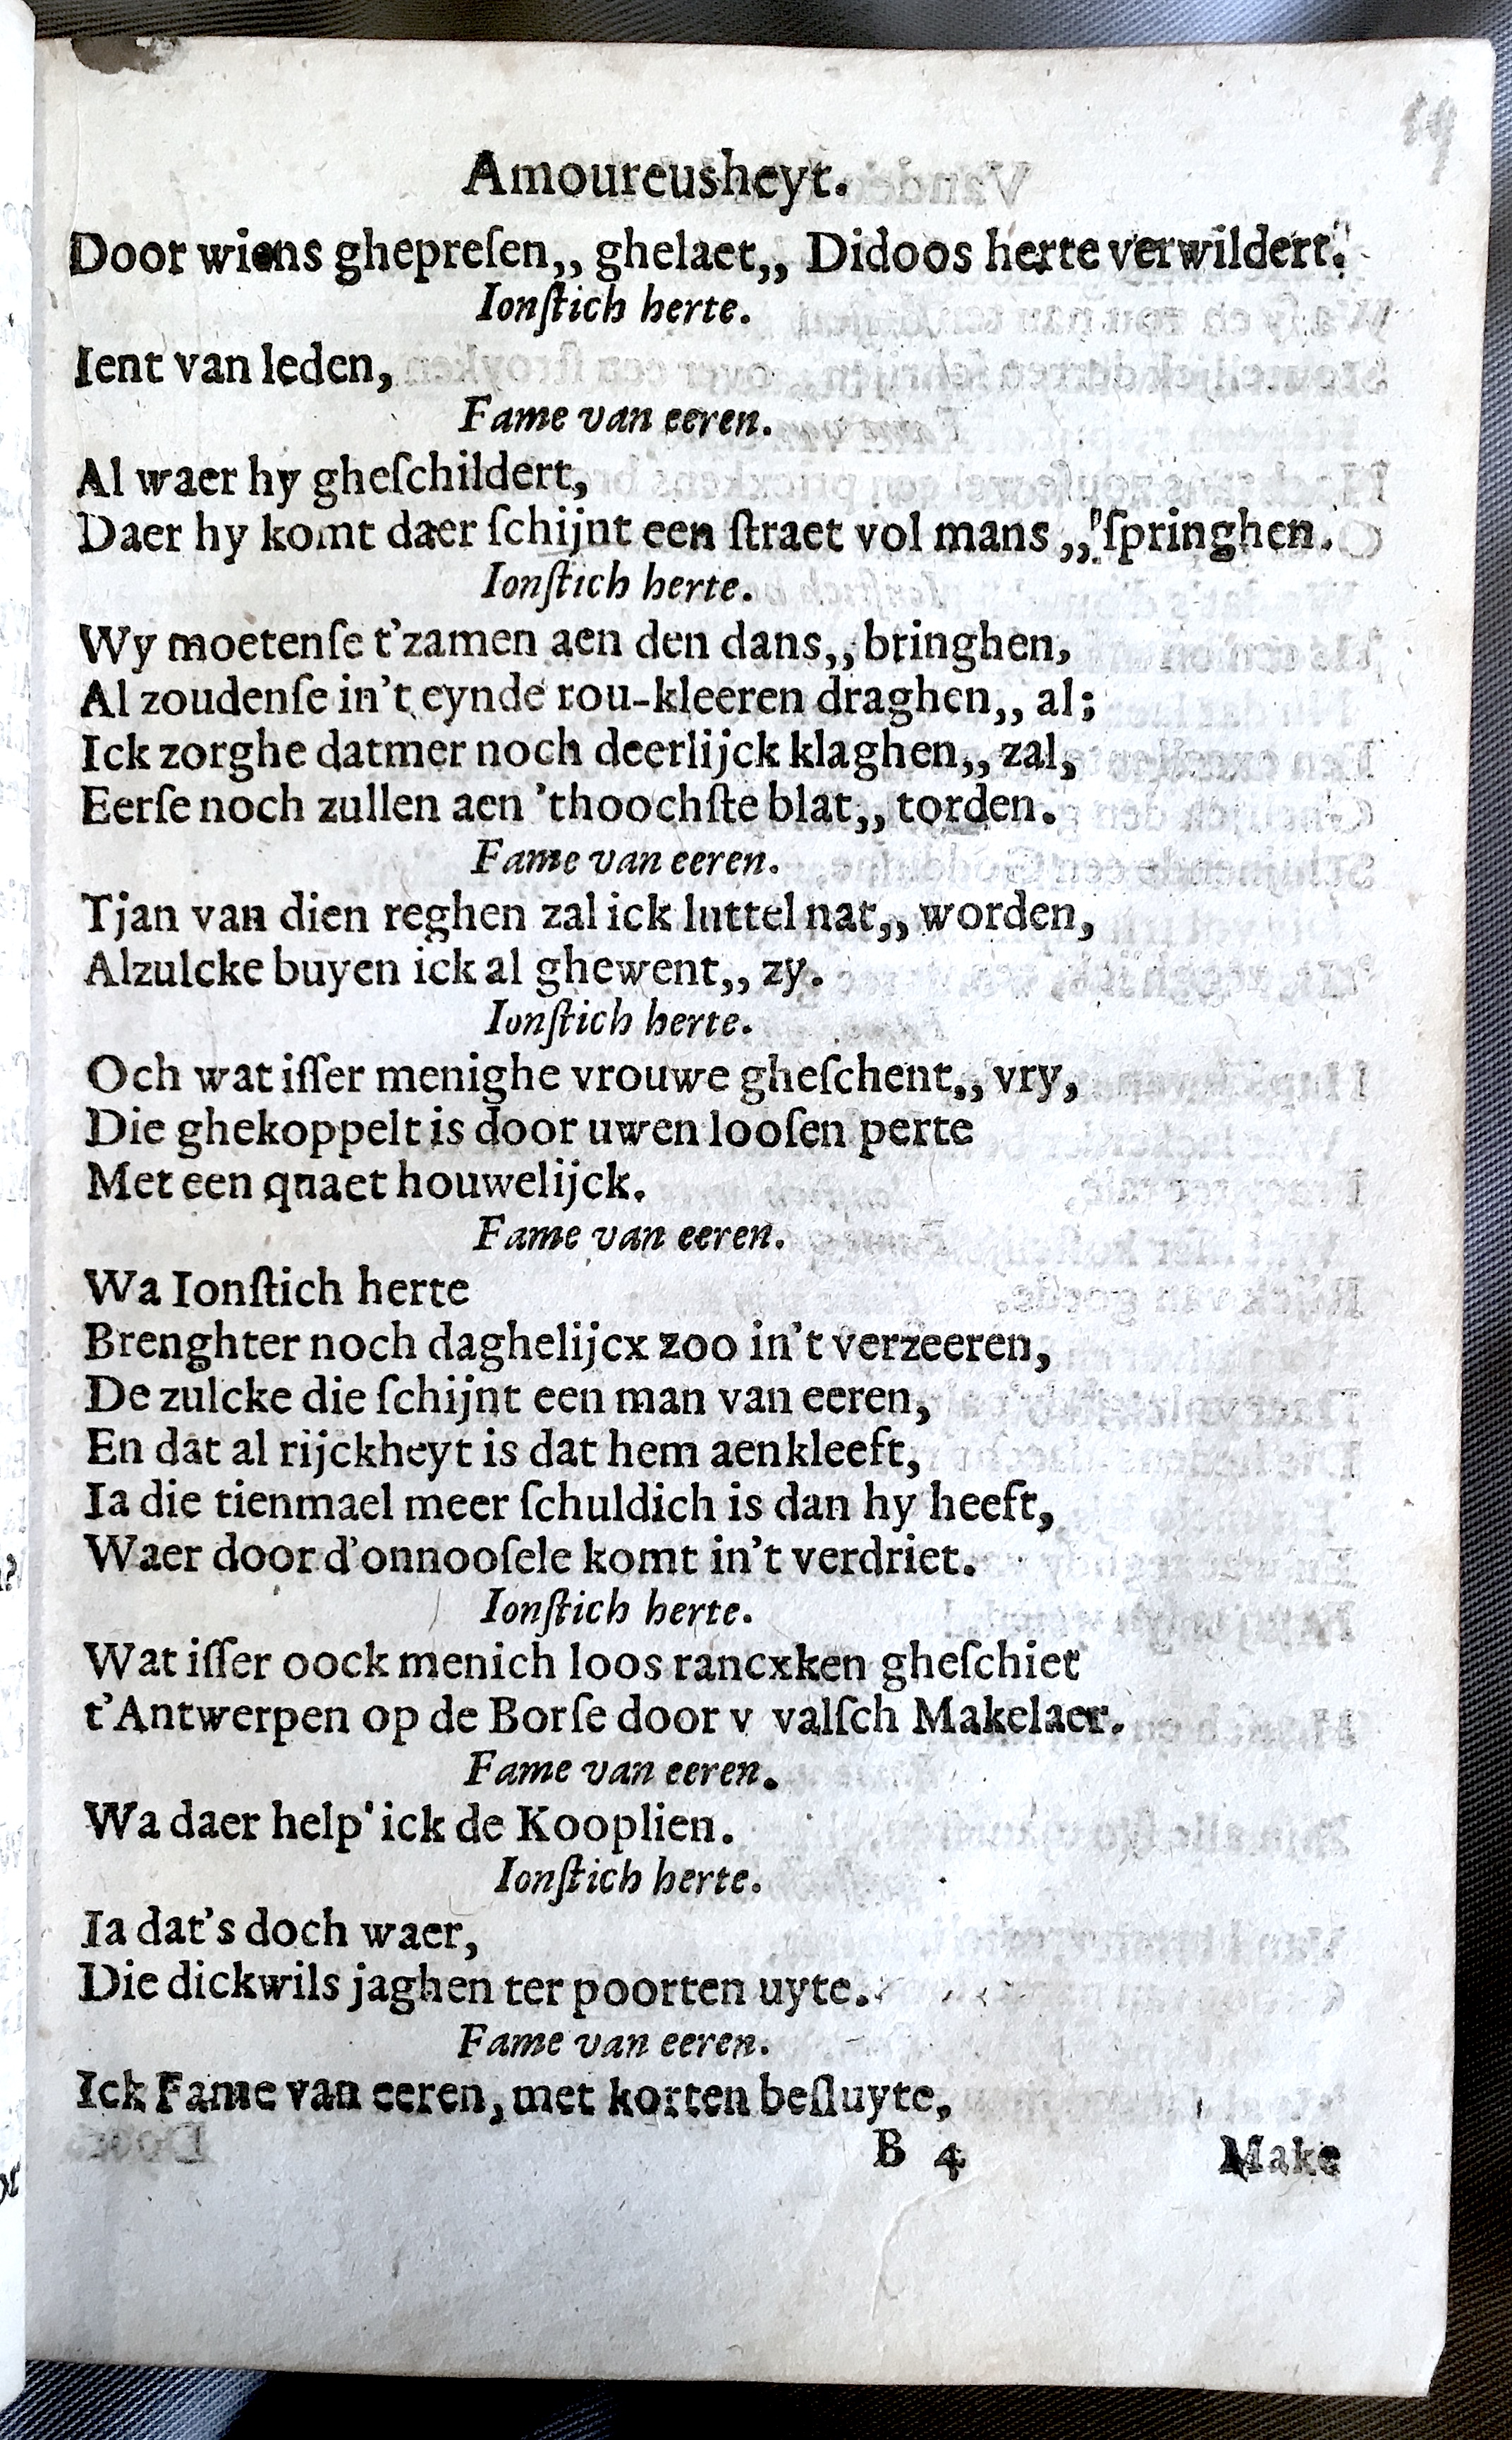 Amoureusheyt.
Door wiens ghepreſen,, ghelaet,, Didoos herte verwildert.
Ionſtich herte.
Ient van leden,
Fame van eeren.
Al waer hy gheſchildert,
Daer hy komt daer ſchijnt een ſtraet vol mans,, ſpringhen.
Ionſtich herte.
Wy moetenſe t'zamen aen den dans,, bringhen,
Al zoudenſe in't eynde rou-kleeren draghen,, al;
Ick zorghe datmer noch deerlijck klaghen,, zal,
Eerſe noch zullen aen 'thoochſte blat,, torden.
Fame van eeren.
Tjan van dien reghen zal ick luttel nat,, worden,
Alzulcke buyen ick al ghewent,, zy.
Ionſtich herte.
Och wat iſſer menighe vrouwe gheſchent,, vry,
Die ghekoppelt is door uwen looſen perte
Met een quaet houwelijck.
Fame van eeren.
Wa Ionſtich herte
Brenghter noch daghelijcx zoo in't verzeeren,
De zulcke die ſchijnt een man van eeren,
En dat al rijckheyt is dat hem aenkleeft,
Ia die tienmael meer ſchuldich is dan hy heeft,
Waer door d'onnooſele komt in't verdriet.
Ionſtich herte.
Wat iſſer oock menich loos rancxken gheſchiet
t'Antwerpen op de Borſe door v valſch Makelaer.
Fame van eeren.
Wa daer help' ick de Kooplien.
Ionſtich herte.
Ia dat's doch waer,
Die dickwils jaghen ter poorten uyte.
Fame van eeren.
Ick Fame van eeren, met korten beſluyte,
B 4 Make